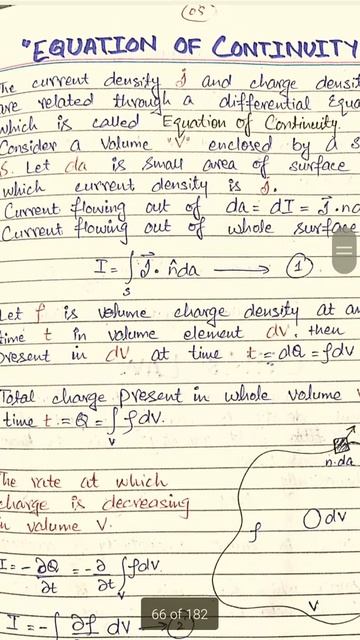 (05)
"EQUATION OF CONTINUITY
The current density J and charge densit
are related through a differential Equa
which is called Equation of Continuity.
Consider a Volume "V" enclosed by a s
S. Let da is small area of surface
which current density is J.
Current flowing out of da = dI = J. nda
Current flowing out of whole surface
I = ∫ J. n̂da → ①
S
Let ρ is volume charge density at an
time t in volume element dv. then
present in dv at time t = dQ = ρdv
Total charge present in whole volume V
time t = Q = ∫ ρdv.
V
n.da
The rate at which
charge is decreasing
in volume V.
ρ
dv
I = -∂Q/∂t = -∂/∂t ∫ ρdv
V
V
66 of 182
I = -∫ ∂ρ dv → ②